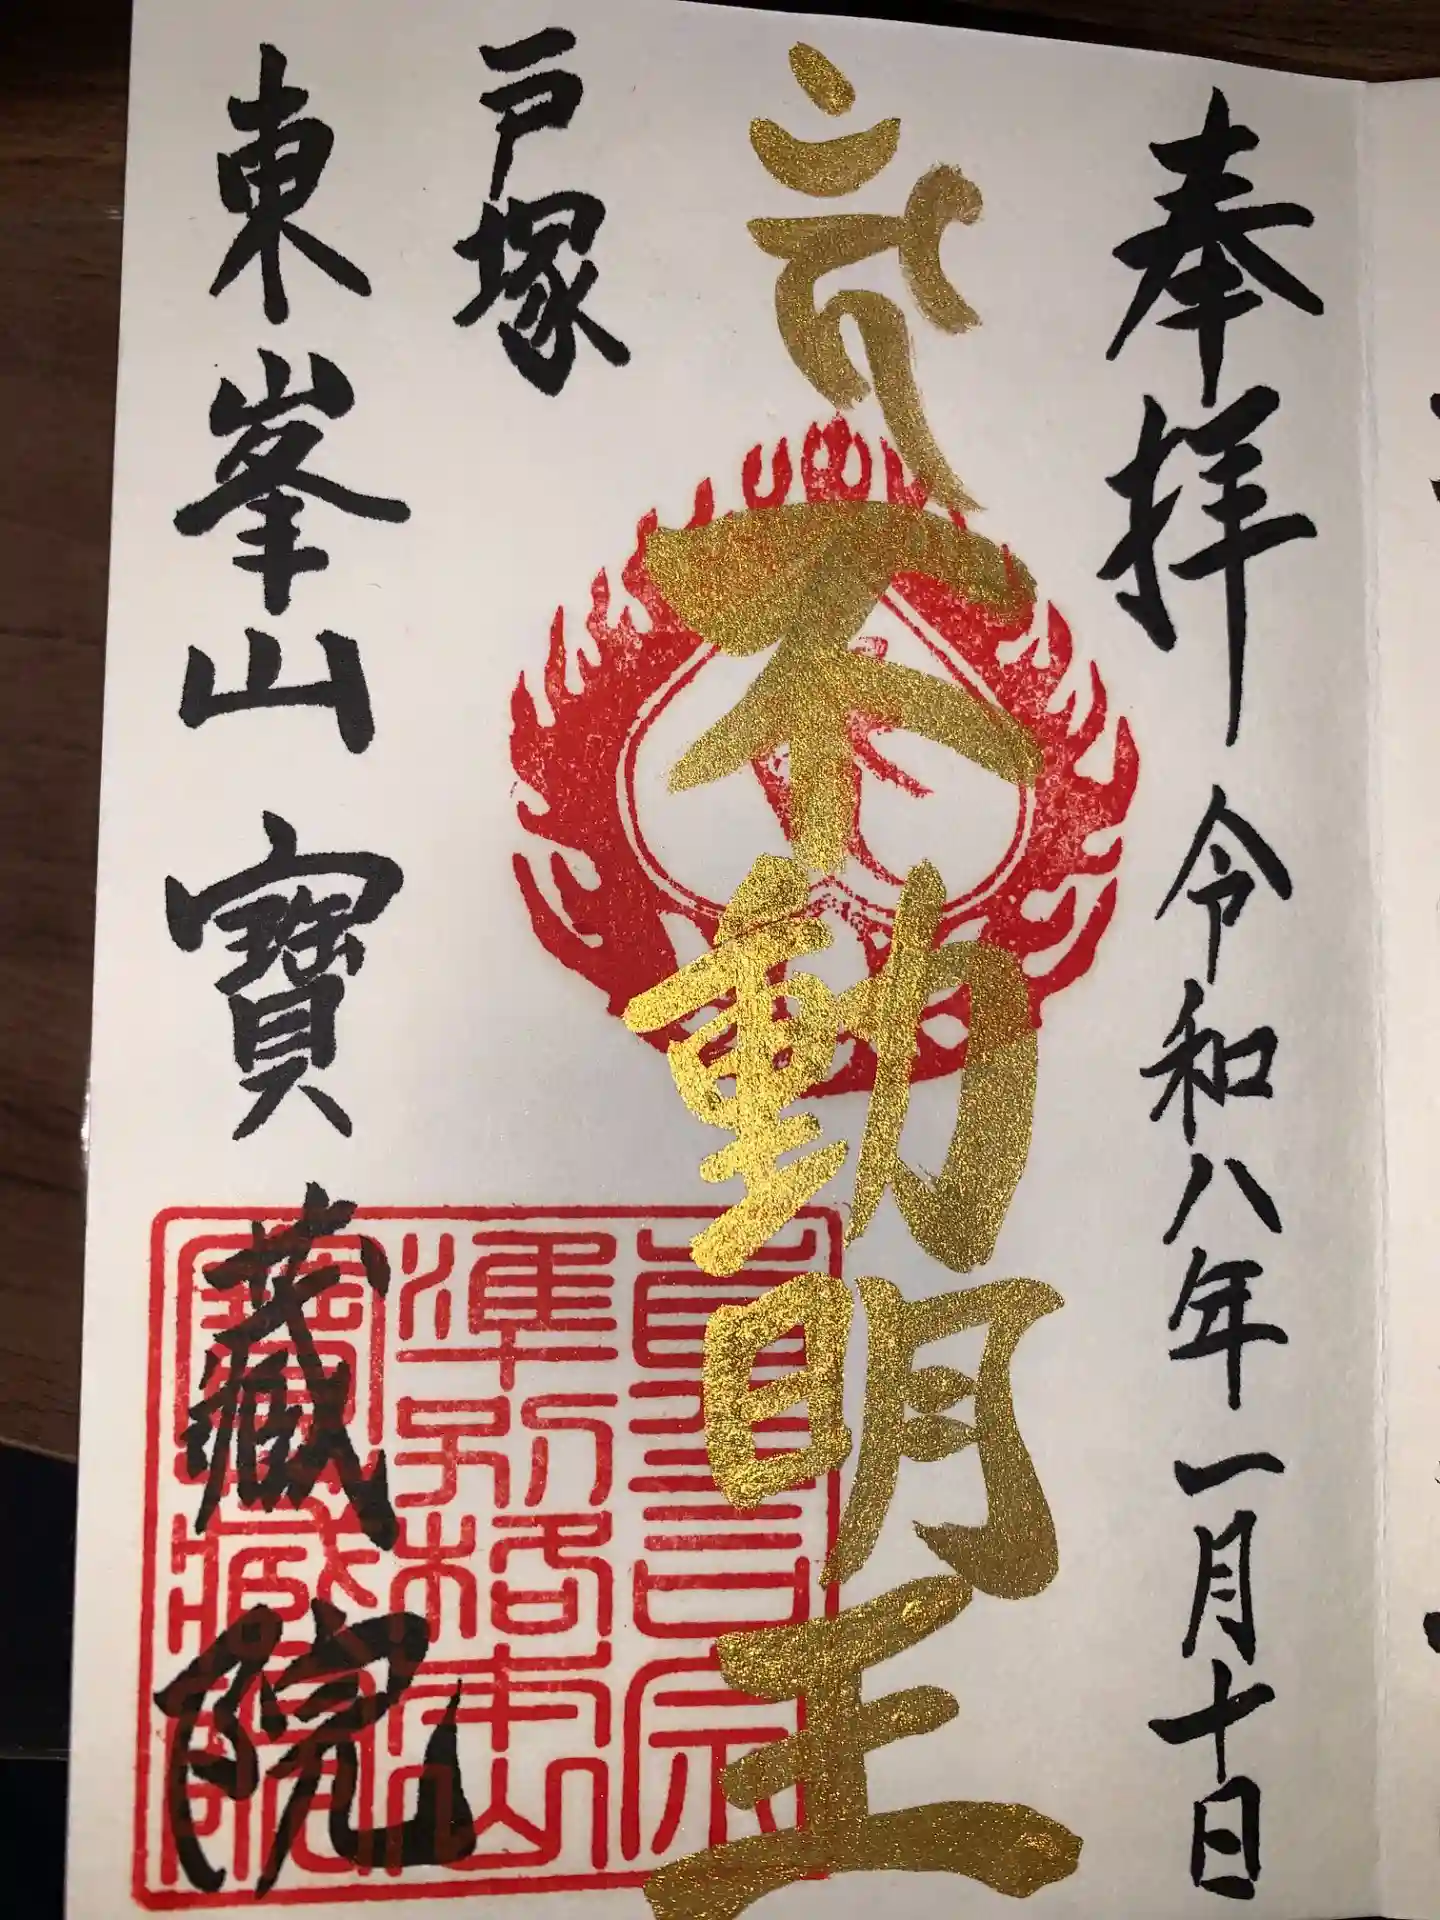 奉拝 令和八年一月十日
不動明王
戸塚
東峯山 寶藏院
眞言宗
準別格本山
寶藏院